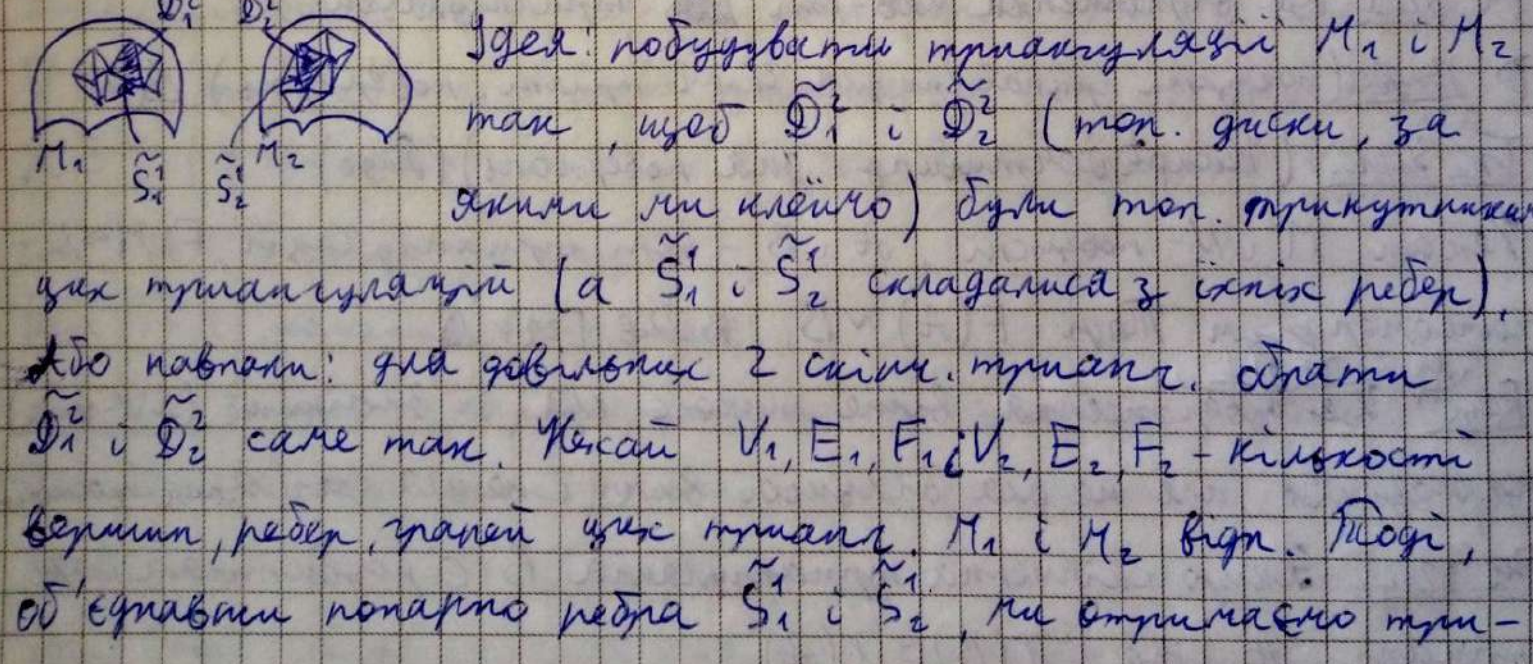 D̃₁² D̃₂²
M₁ S̃₁¹ S̃₂¹ M₂
Ідея: побудувати триангуляції M₁ і M₂
так, щоб D̃₁² і D̃₂² (топ. диски, за
якими ми клеїмо) були топ. трикутниками
цих триангуляцій (а S̃₁¹ і S̃₂¹ складалися з їхніх ребер).
Або навпаки: для довільних 2 скінч. трианг. обрати
D̃₁² і D̃₂² саме так. Нехай V₁, E₁, F₁ і V₂, E₂, F₂ - кількості
вершин, ребер, граней цих трианг. M₁ і M₂ відп. Тоді,
об'єднавши попарно ребра S̃₁¹ і S̃₂¹, ми отримаємо три-